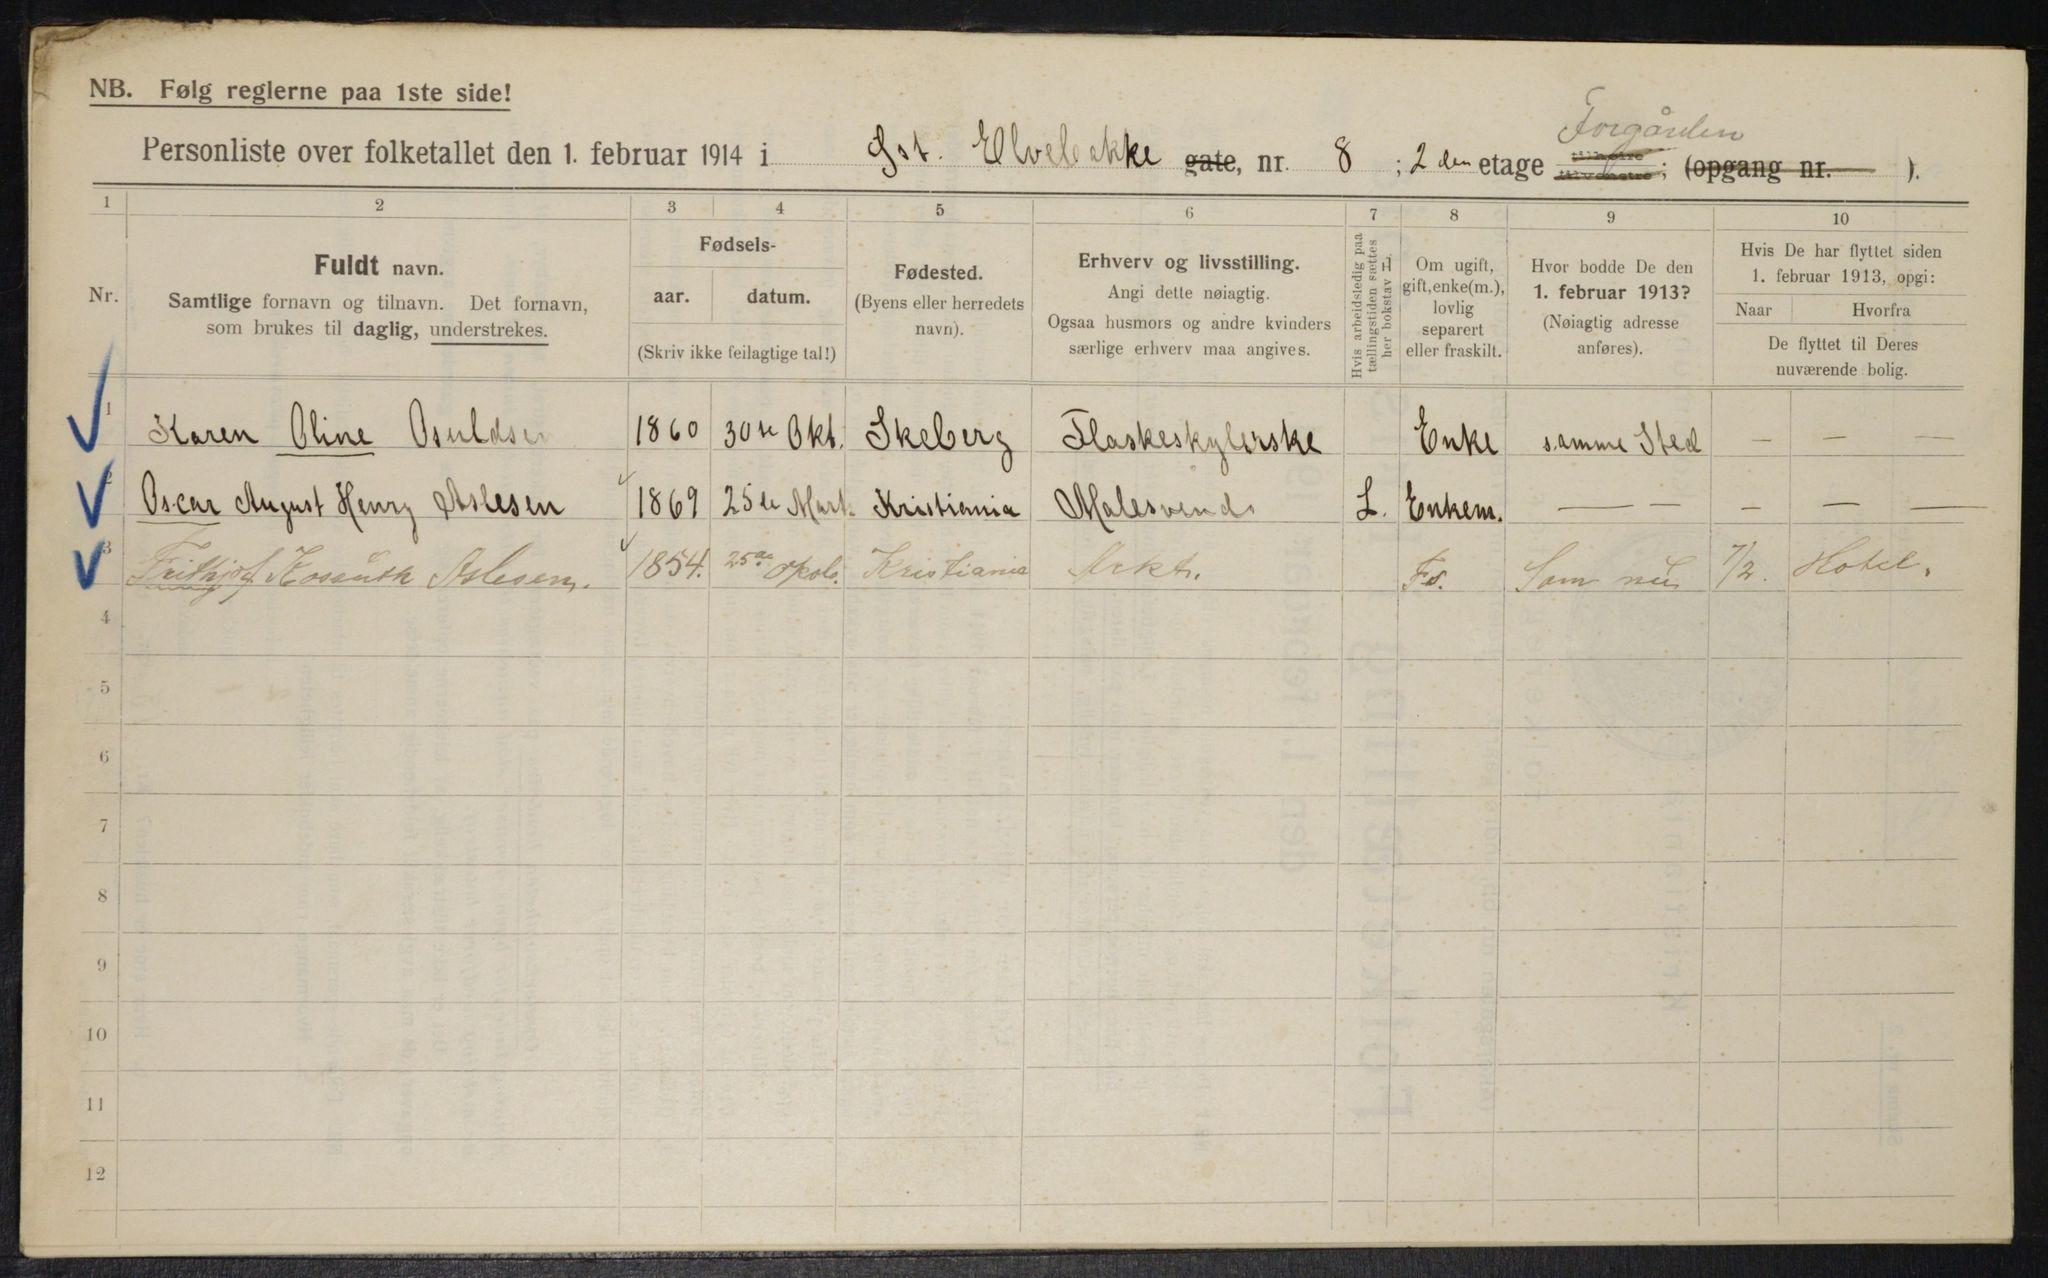 NB. Følg reglerne paa 1ste side!
Forgården
Personliste over folketallet den 1. februar 1914 i Gst. Elvebakke gate, nr. 8 ; 2den etage tilhøire tilvenstre; (opgang nr. ).
1 2 3 4 5 6 7 8 9 10
Nr.
Fuldt navn.
Samtlige fornavn og tilnavn. Det fornavn,
som brukes til daglig, understrekes.
Fødsels-
aar. datum.
(Skriv ikke feilagtige tal!)
Fødested.
(Byens eller herredets
navn).
Erhverv og livsstilling.
Angi dette nøiagtig.
Ogsaa husmors og andre kvinders
særlige erhverv maa angives.
Hvis arbeidsledig paa
tællingstiden sættes
her bokstav L.
Om ugift,
gift, enke(m.),
lovlig
separert
eller fraskilt.
Hvor bodde De den
1. februar 1913?
(Nøiagtig adresse
anføres).
Hvis De har flyttet siden
1. februar 1913, opgi:
Naar Hvorfra
De flyttet til Deres
nuværende bolig.
1 Karen Oline Osuldsen 1860 30te Okt. Skeberg Flaskeskylerske Enke samme Sted — — —
2 Oscar August Henry Aslesen 1869 25de Mart. Kristiania Malesvend L. Enkem. — — — — —
3 Frithjof Aslesen. 1854. 25de Kristiania Fs. Som nu 7/2. Hotel.
4
5
6
7
8
9
10
11
12